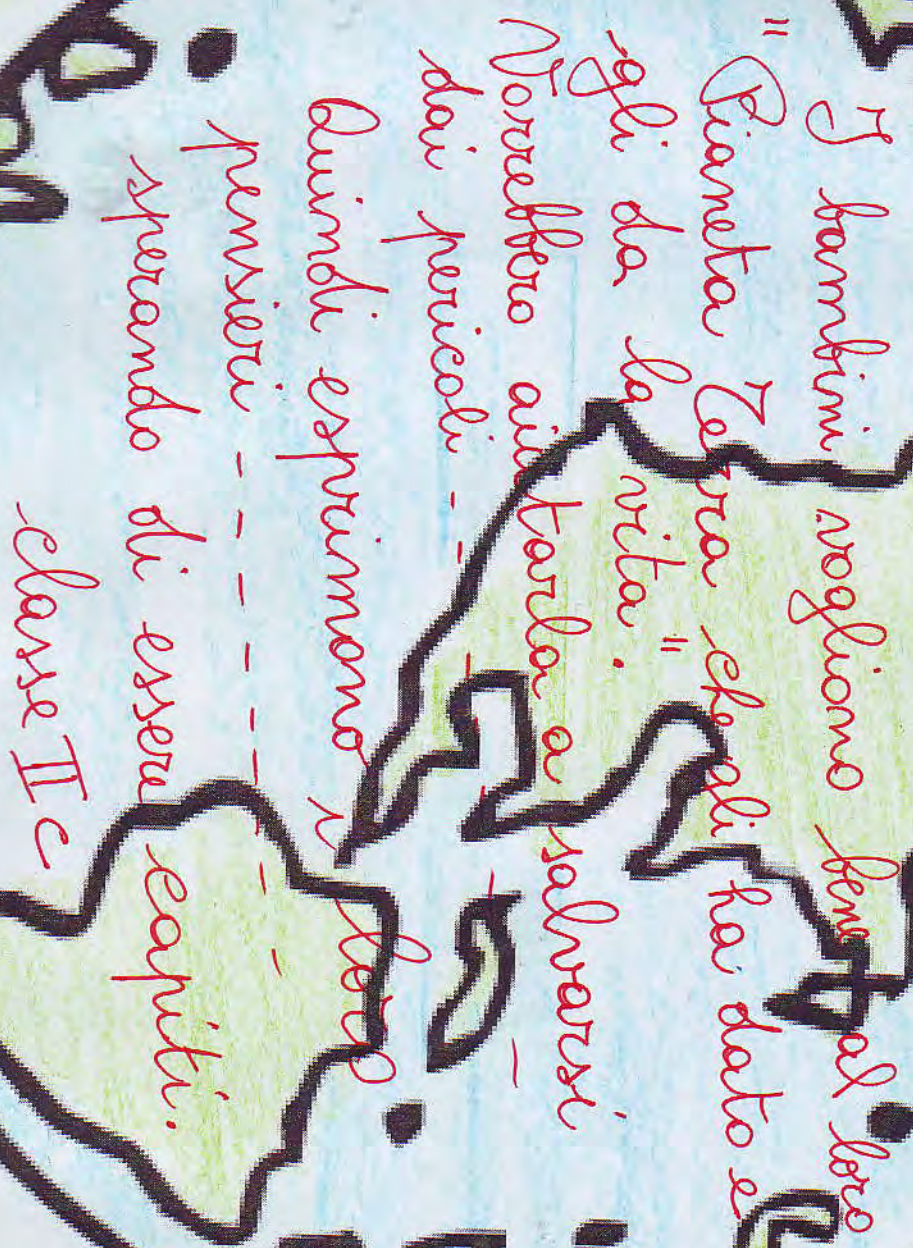 I bambini vogliono bene al loro
" Pianeta Terra che gli ha dato e
gli da la vita. "
Vorrebbero aiutarla a salvarsi
dai pericoli - - - - -
Quindi esprimono i loro
pensieri - - - - - - - -
sperando di essere capiti.
classe II C